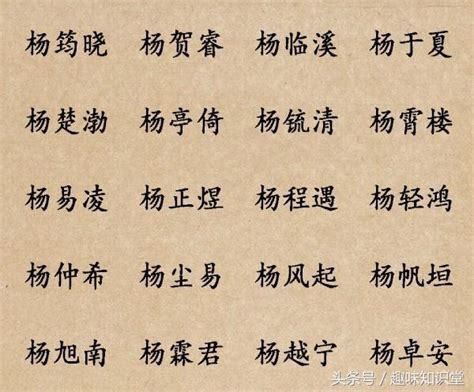 杨筠晓 杨贺睿 杨临溪 杨于夏
杨楚渤 杨亭倚 杨锍清 杨霄楼
杨易凌 杨正煜 杨程遇 杨轻鸿
杨仲希 杨尘易 杨风起 杨帆垣
杨旭南 杨霖君 杨越宁 杨卓安
头条号 / 趣味知识堂